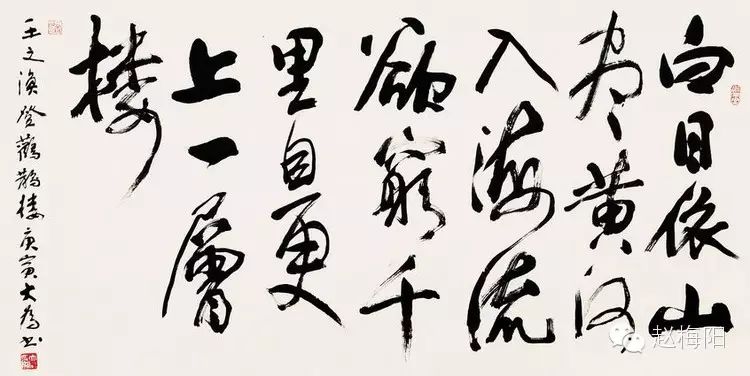 白日依山
尽黄河
入海流
欲窮千
里目更
上一層
楼
王之涣登鸛鵲楼庚寅大為书
赵梅阳